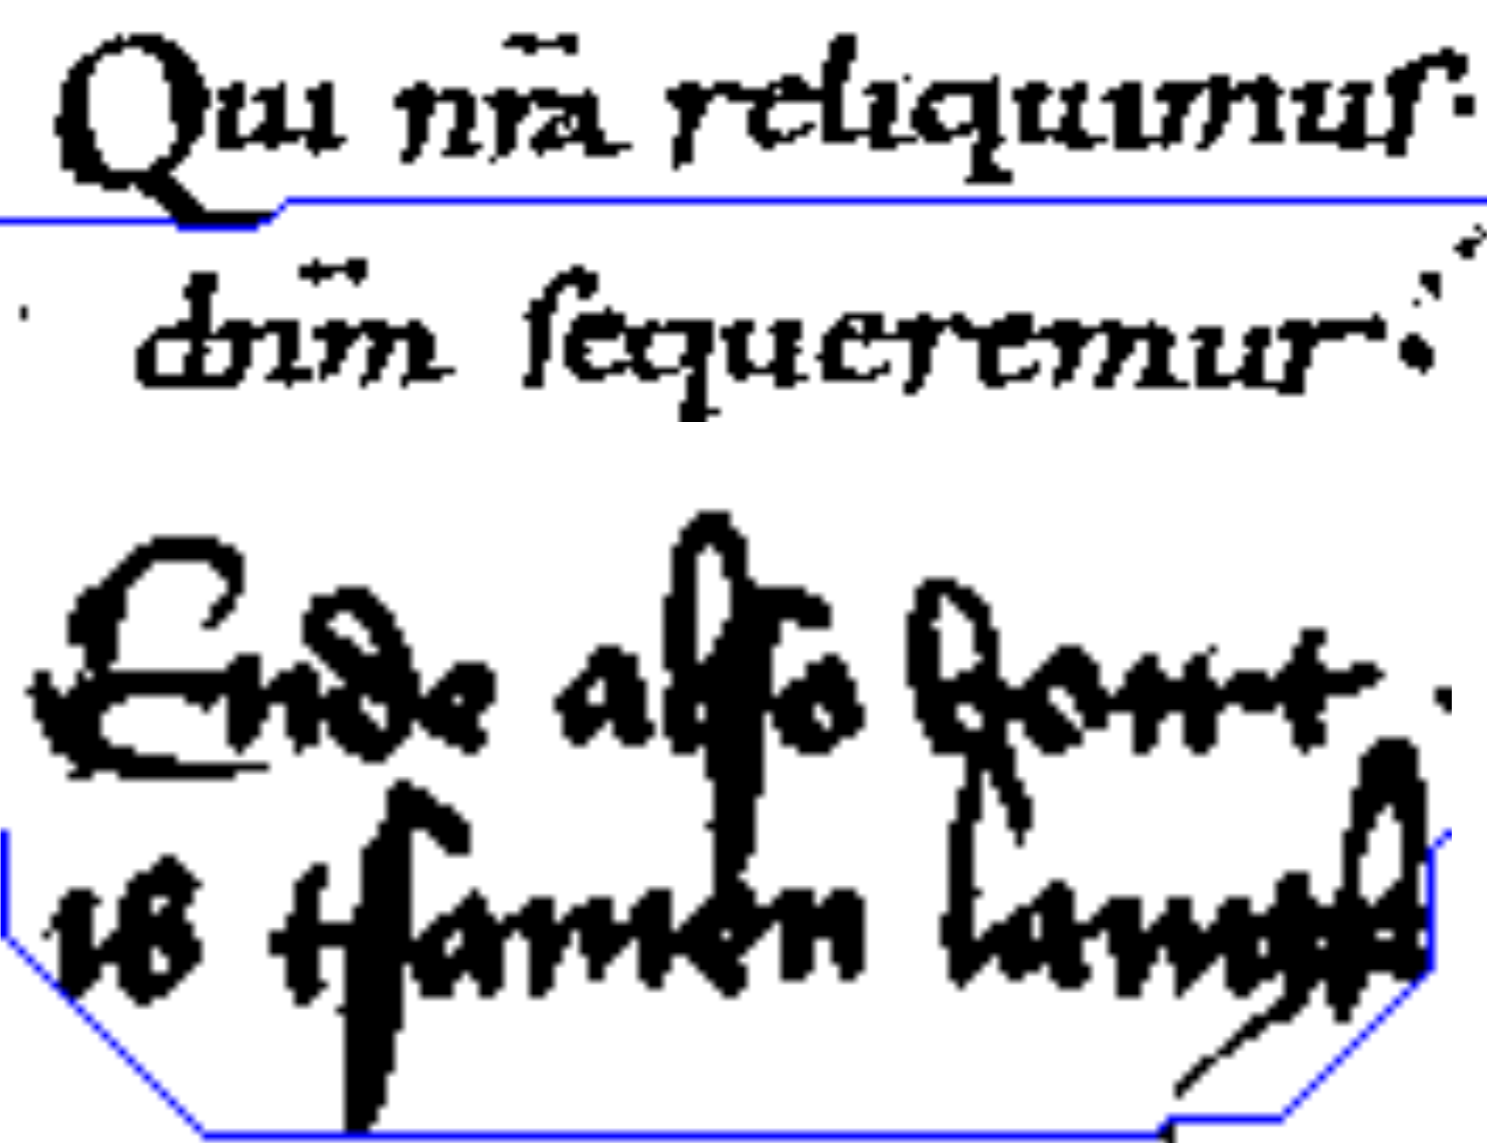 Qui nr̄a reliquimuſ.
dn̄m ſequeremur.
Ende alſo hant
is tſamen